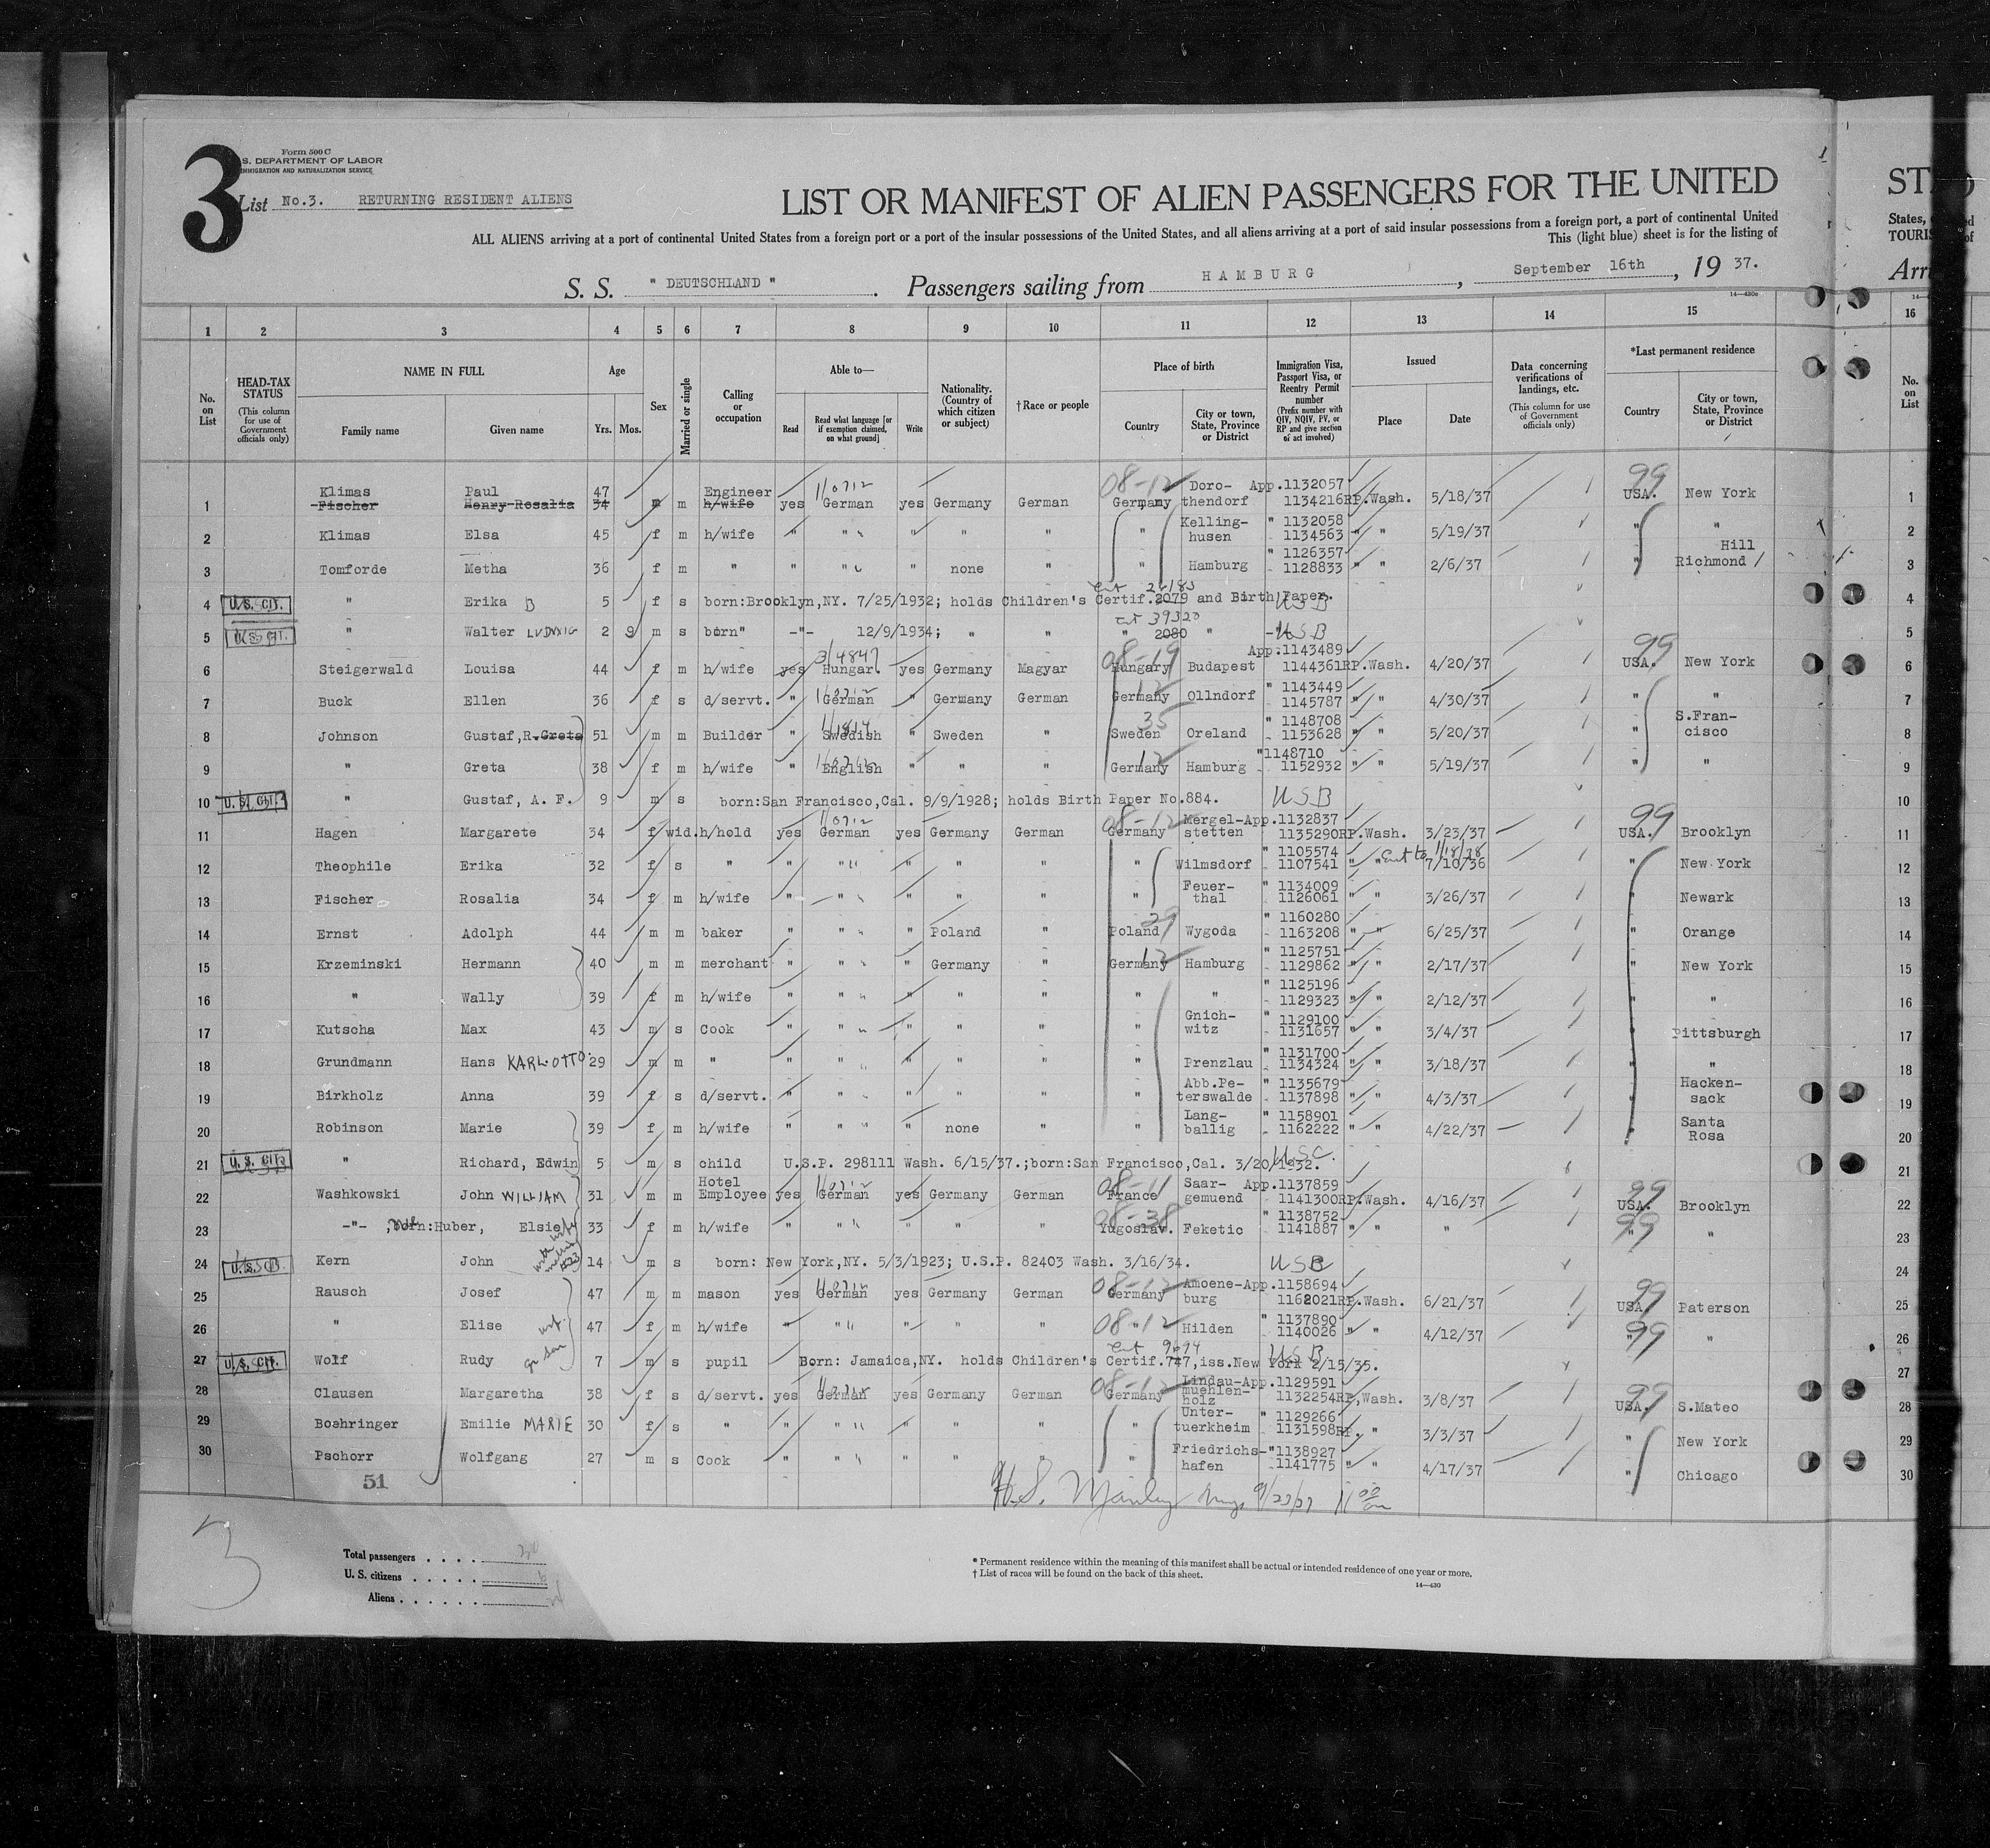 3
Form 500 C
S. DEPARTMENT OF LABOR
IMMIGRATION AND NATURALIZATION SERVICE
List No.3. RETURNING RESIDENT ALIENS
LIST OR MANIFEST OF ALIEN PASSENGERS FOR THE UNITED
ALL ALIENS arriving at a port of continental United States from a foreign port or a port of the insular possessions of the United States, and all aliens arriving at a port of said insular possessions from a foreign port, a port of continental United
This (light blue) sheet is for the listing of
S. S. " DEUTSCHLAND ". Passengers sailing from HAMBURG, September 16th, 19 37.
14—430c
1 2 3 4 5 6 7 8 9 10 11 12 13 14 15 16
No. on List
HEAD-TAX STATUS (This column for use of Government officials only)
NAME IN FULL Family name Given name
Age Yrs. Mos.
Sex
Married or single
Calling or occupation
Able to— Read Read what language [or if exemption claimed, on what ground] Write
Nationality. (Country of which citizen or subject)
†Race or people
Place of birth Country City or town, State, Province or District
Immigration Visa, Passport Visa, or Reentry Permit number (Prefix number with QIV, NQIV, PV, or RP and give section of act involved)
Issued Place Date
Data concerning verifications of landings, etc. (This column for use of Government officials only)
*Last permanent residence Country City or town, State, Province or District
No. on List
Klimas Paul 47 Engineer Doro- App.1132057
1 Fischer Henry Rosalia 34 m m h/wife yes German yes Germany German Germany thendorf 1134216RP.Wash. 5/18/37 USA. New York 1
Kelling- " 1132058
2 Klimas Elsa 45 f m h/wife " " " " " " husen 1134563 " " 5/19/37 " " 2
" 1126357 Hill
3 Tomforde Metha 36 f m " " " " none " " Hamburg 1128833 " " 2/6/37 " Richmond 3
4 U.S. CIT. " Erika B 5 f s born:Brooklyn,NY. 7/25/1932; holds Children's Certif.2079 and Birth Paper. USB 4
5 U.S. CIT. " Walter LUDWIG 2 9 m s born" -"- 12/9/1934; " " " 2080 " -"- USB 5
App.1143489
6 Steigerwald Louisa 44 f m h/wife yes Hungar. yes Germany Magyar Hungary Budapest 1144361RP.Wash. 4/20/37 USA. New York 6
" 1143449
7 Buck Ellen 36 f s d/servt. " German " Germany German Germany Ollndorf 1145787 " " 4/30/37 " " 7
" 1148708 S.Fran-
8 Johnson Gustaf,R.Greta 51 m m Builder " Swedish " Sweden " Sweden Oreland 1153628 " " 5/20/37 " cisco 8
"1148710
9 " Greta 38 f m h/wife " English " " " Germany Hamburg 1152932 " " 5/19/37 " " 9
10 U.S. CIT. " Gustaf, A. F. 9 m s born:San Francisco,Cal. 9/9/1928; holds Birth Paper No.884. USB 10
Mergel-App.1132837
11 Hagen Margarete 34 f wid. h/hold yes German yes Germany German Germany stetten 1135290RP.Wash. 3/23/37 USA. Brooklyn 11
" 1105574
12 Theophile Erika 32 f s " " " " " " " Wilmsdorf 1107541 " " 7/10/36 " New York 12
Feuer- " 1134009
13 Fischer Rosalia 34 f m h/wife " " " " " " thal 1126061 " " 3/26/37 " Newark 13
" 1160280
14 Ernst Adolph 44 m m baker " " " Poland " Poland Wygoda 1163208 " " 6/25/37 " Orange 14
" 1125751
15 Krzeminski Hermann 40 m m merchant " " " Germany " Germany Hamburg 1129862 " " 2/17/37 " New York 15
" 1125196
16 " Wally 39 f m h/wife " " " " " " " 1129323 " " 2/12/37 " " 16
Gnich- " 1129100
17 Kutscha Max 43 m s Cook " " " " " " witz 1131657 " " 3/4/37 " Pittsburgh 17
" 1131700
18 Grundmann Hans KARL-OTTO 29 m m " " " " " " " Prenzlau 1134324 " " 3/18/37 " " 18
Abb.Pe- " 1135679 Hacken-
19 Birkholz Anna 39 f s d/servt. " " " " " " terswalde 1137898 " " 4/3/37 " sack 19
Lang- " 1158901 Santa
20 Robinson Marie 39 f m h/wife " " " none " " ballig 1162222 " " 4/22/37 " Rosa 20
21 U.S. CIT. " Richard, Edwin 5 m s child U.S.P. 298111 Wash. 6/15/37.;born:San Francisco,Cal. 3/20/1932. USC. 21
Hotel Saar- App.1137859
22 Washkowski John WILLIAM 31 m m Employee yes German yes Germany German France gemuend 1141300RP.Wash. 4/16/37 USA. Brooklyn 22
" 1138752
23 -"- ,born:Huber, Elsie 33 f m h/wife " " " " " Yugoslav. Feketic 1141887 " " " " " 23
24 U.S. CIT. Kern John 14 m s born: New York,NY. 5/3/1923; U.S.P. 82403 Wash. 3/16/34. USB 24
Amoene-App.1158694
25 Rausch Josef 47 m m mason yes German yes Germany German Germany burg 1162021RP.Wash. 6/21/37 USA Paterson 25
" 1137890
26 " Elise 47 f m h/wife " " " " " " Hilden 1140026 " " 4/12/37 " " 26
27 U.S. CIT. Wolf Rudy 7 m s pupil Born: Jamaica,NY. holds Children's Certif.747,iss.New York 2/15/35. USB 27
Lindau-App.1129591
muehlen-
28 Clausen Margaretha 38 f s d/servt. yes German yes Germany German Germany holz 1132254RP,Wash. 3/8/37 USA. S.Mateo 28
Unter- " 1129266
29 Boehringer Emilie MARIE 30 f s " " " " " " " tuerkheim 1131598RP. " 3/3/37 " New York 29
Friedrichs-"1138927
30 Pschorr Wolfgang 27 m s Cook " " " " " " hafen 1141775 " " 4/17/37 " Chicago 30
51
H.S. Manley
3
Total passengers
U. S. citizens
Aliens
* Permanent residence within the meaning of this manifest shall be actual or intended residence of one year or more.
† List of races will be found on the back of this sheet.
14—430